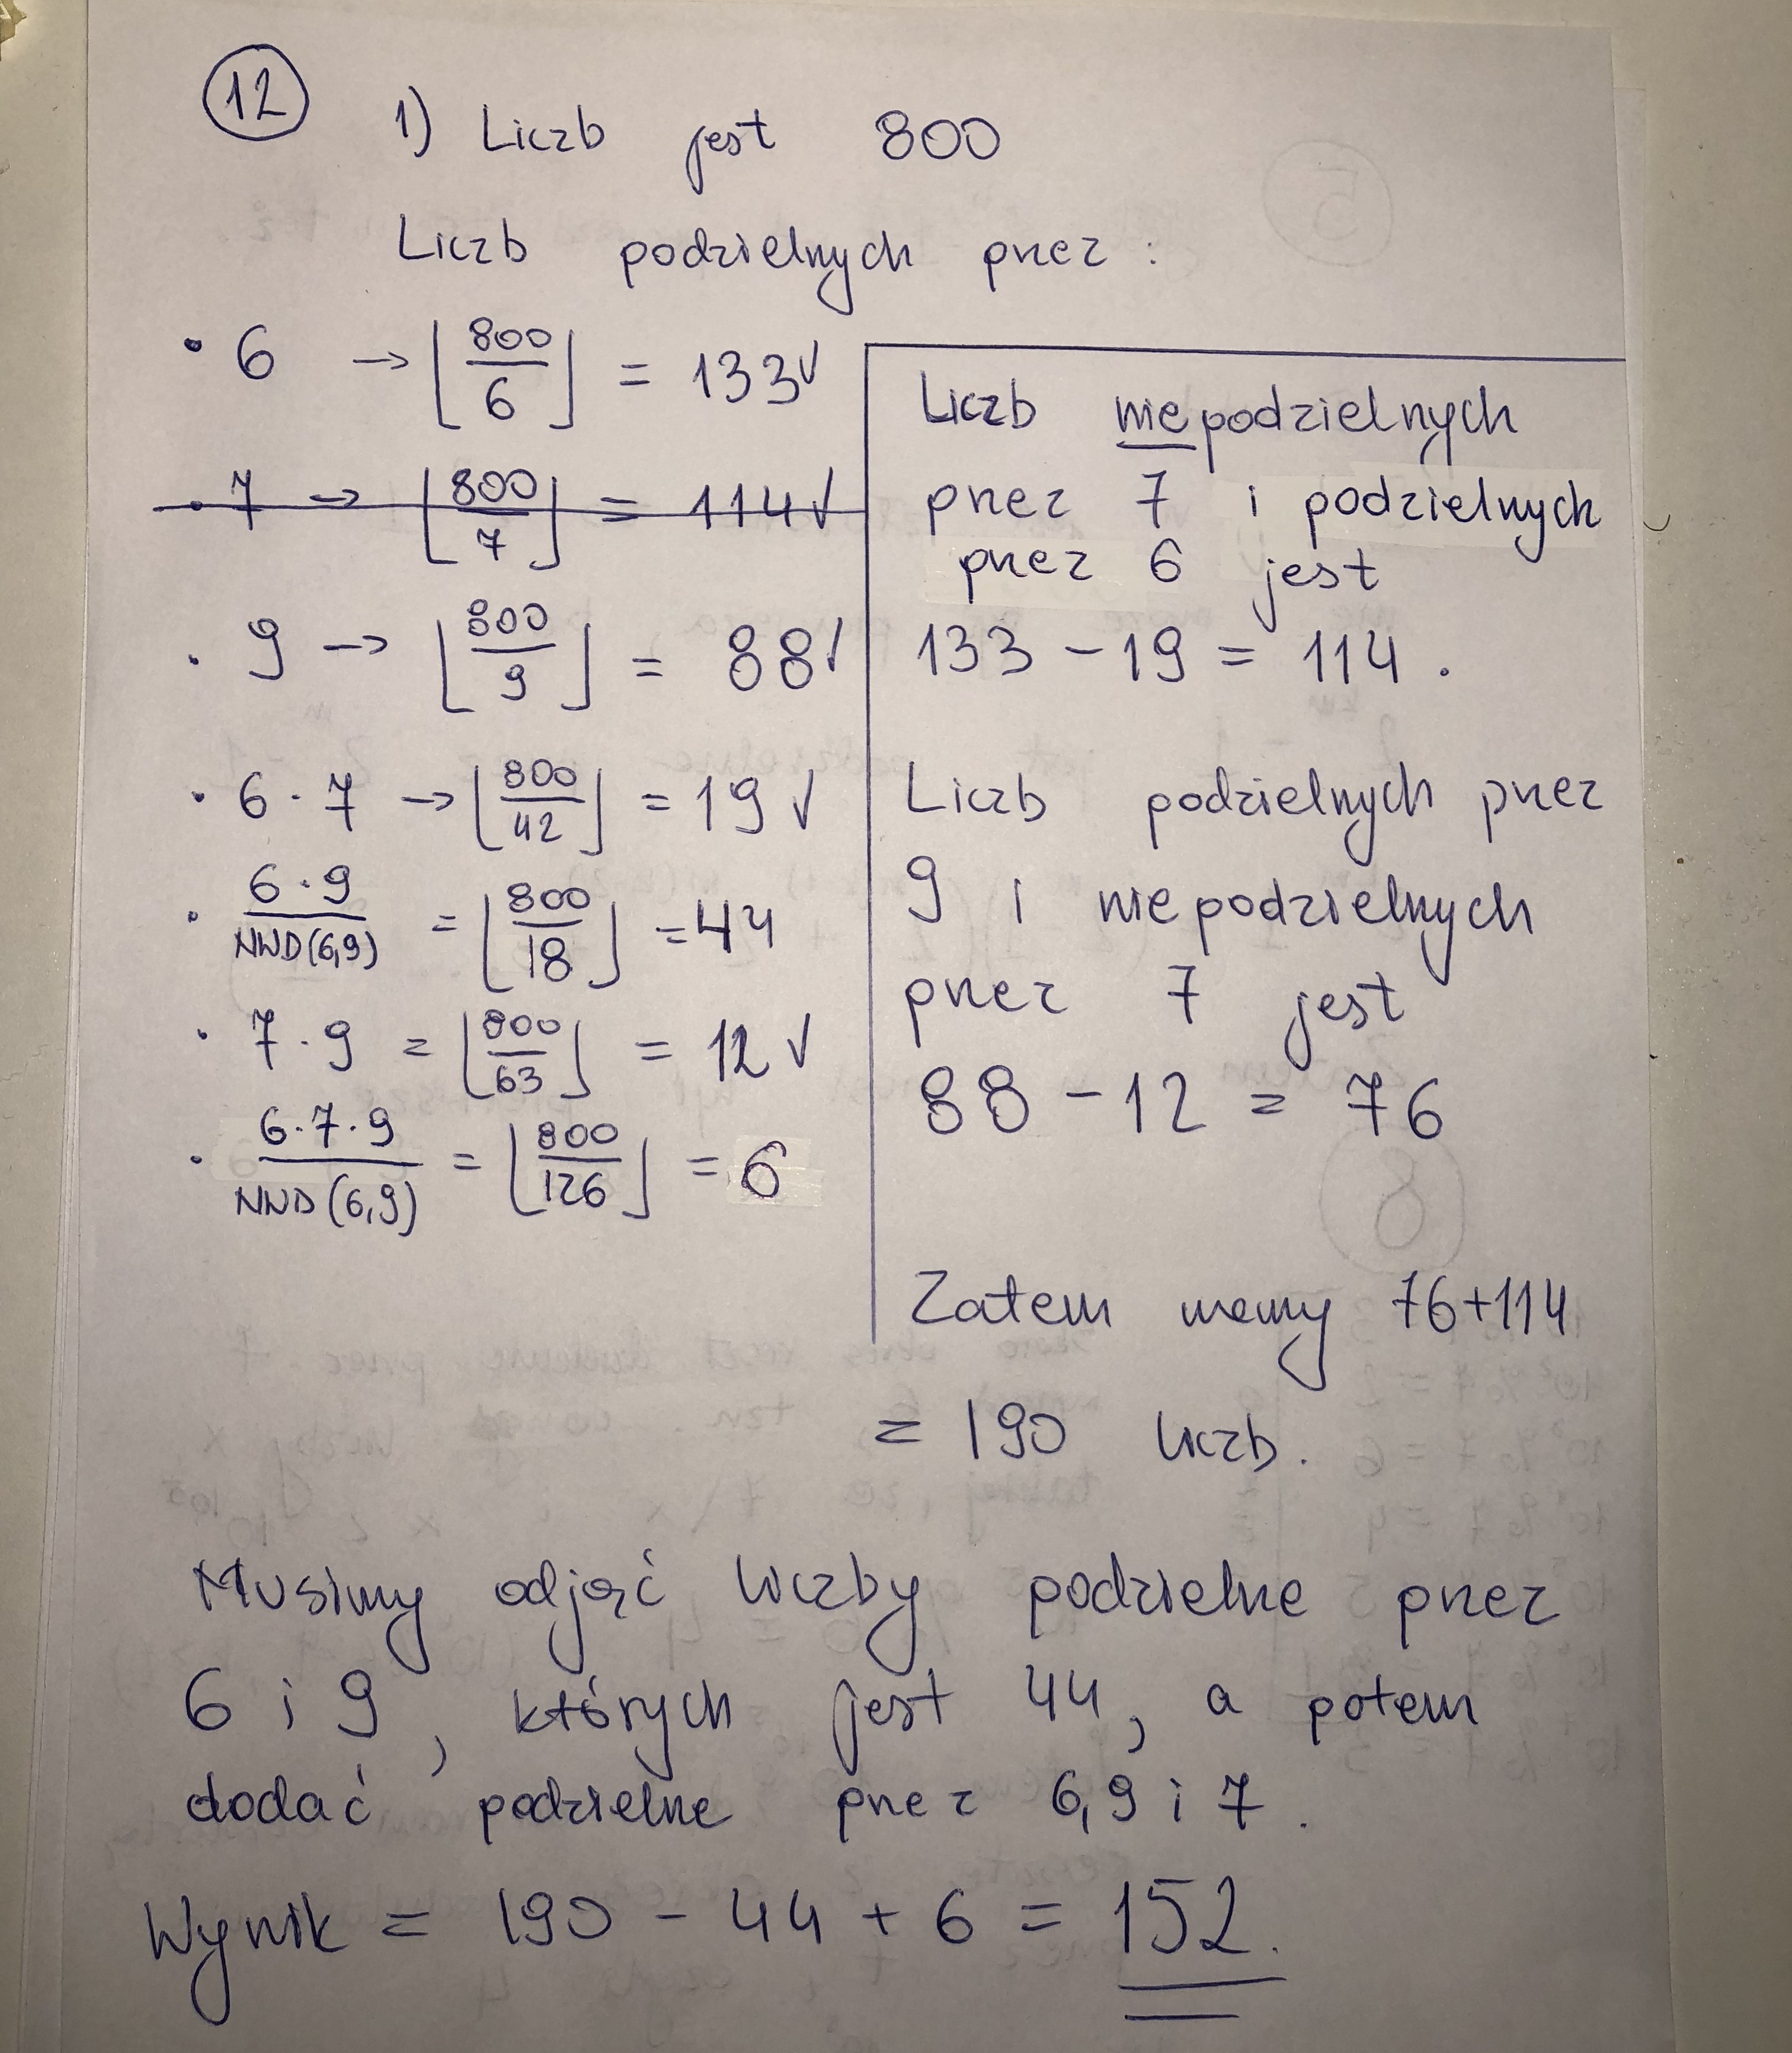 12
1) Liczb jest 800
Liczb podzielnych przez :
• 6 → ⌊800/6⌋ = 133✓
• 7 → ⌊800/7⌋ = 114✓
• 9 → ⌊800/9⌋ = 88✓
• 6 · 7 → ⌊800/42⌋ = 19✓
• 6·9/NWD(6,9) = ⌊800/18⌋ = 44
• 7·9 = ⌊800/63⌋ = 12✓
• 6·7·9/NWD(6,9) = ⌊800/126⌋ = 6
Liczb niepodzielnych
przez 7 i podzielnych
przez 6 jest
133 - 19 = 114 .
Liczb podzielnych przez
9 i niepodzielnych
przez 7 jest
88 - 12 = 76
Zatem mamy 76+114
= 190 liczb.
Musimy odjąć liczby podzielne przez
6 i 9, których jest 44, a potem
dodać podzielne przez 6,9 i 7.
Wynik = 190 - 44 + 6 = 152.